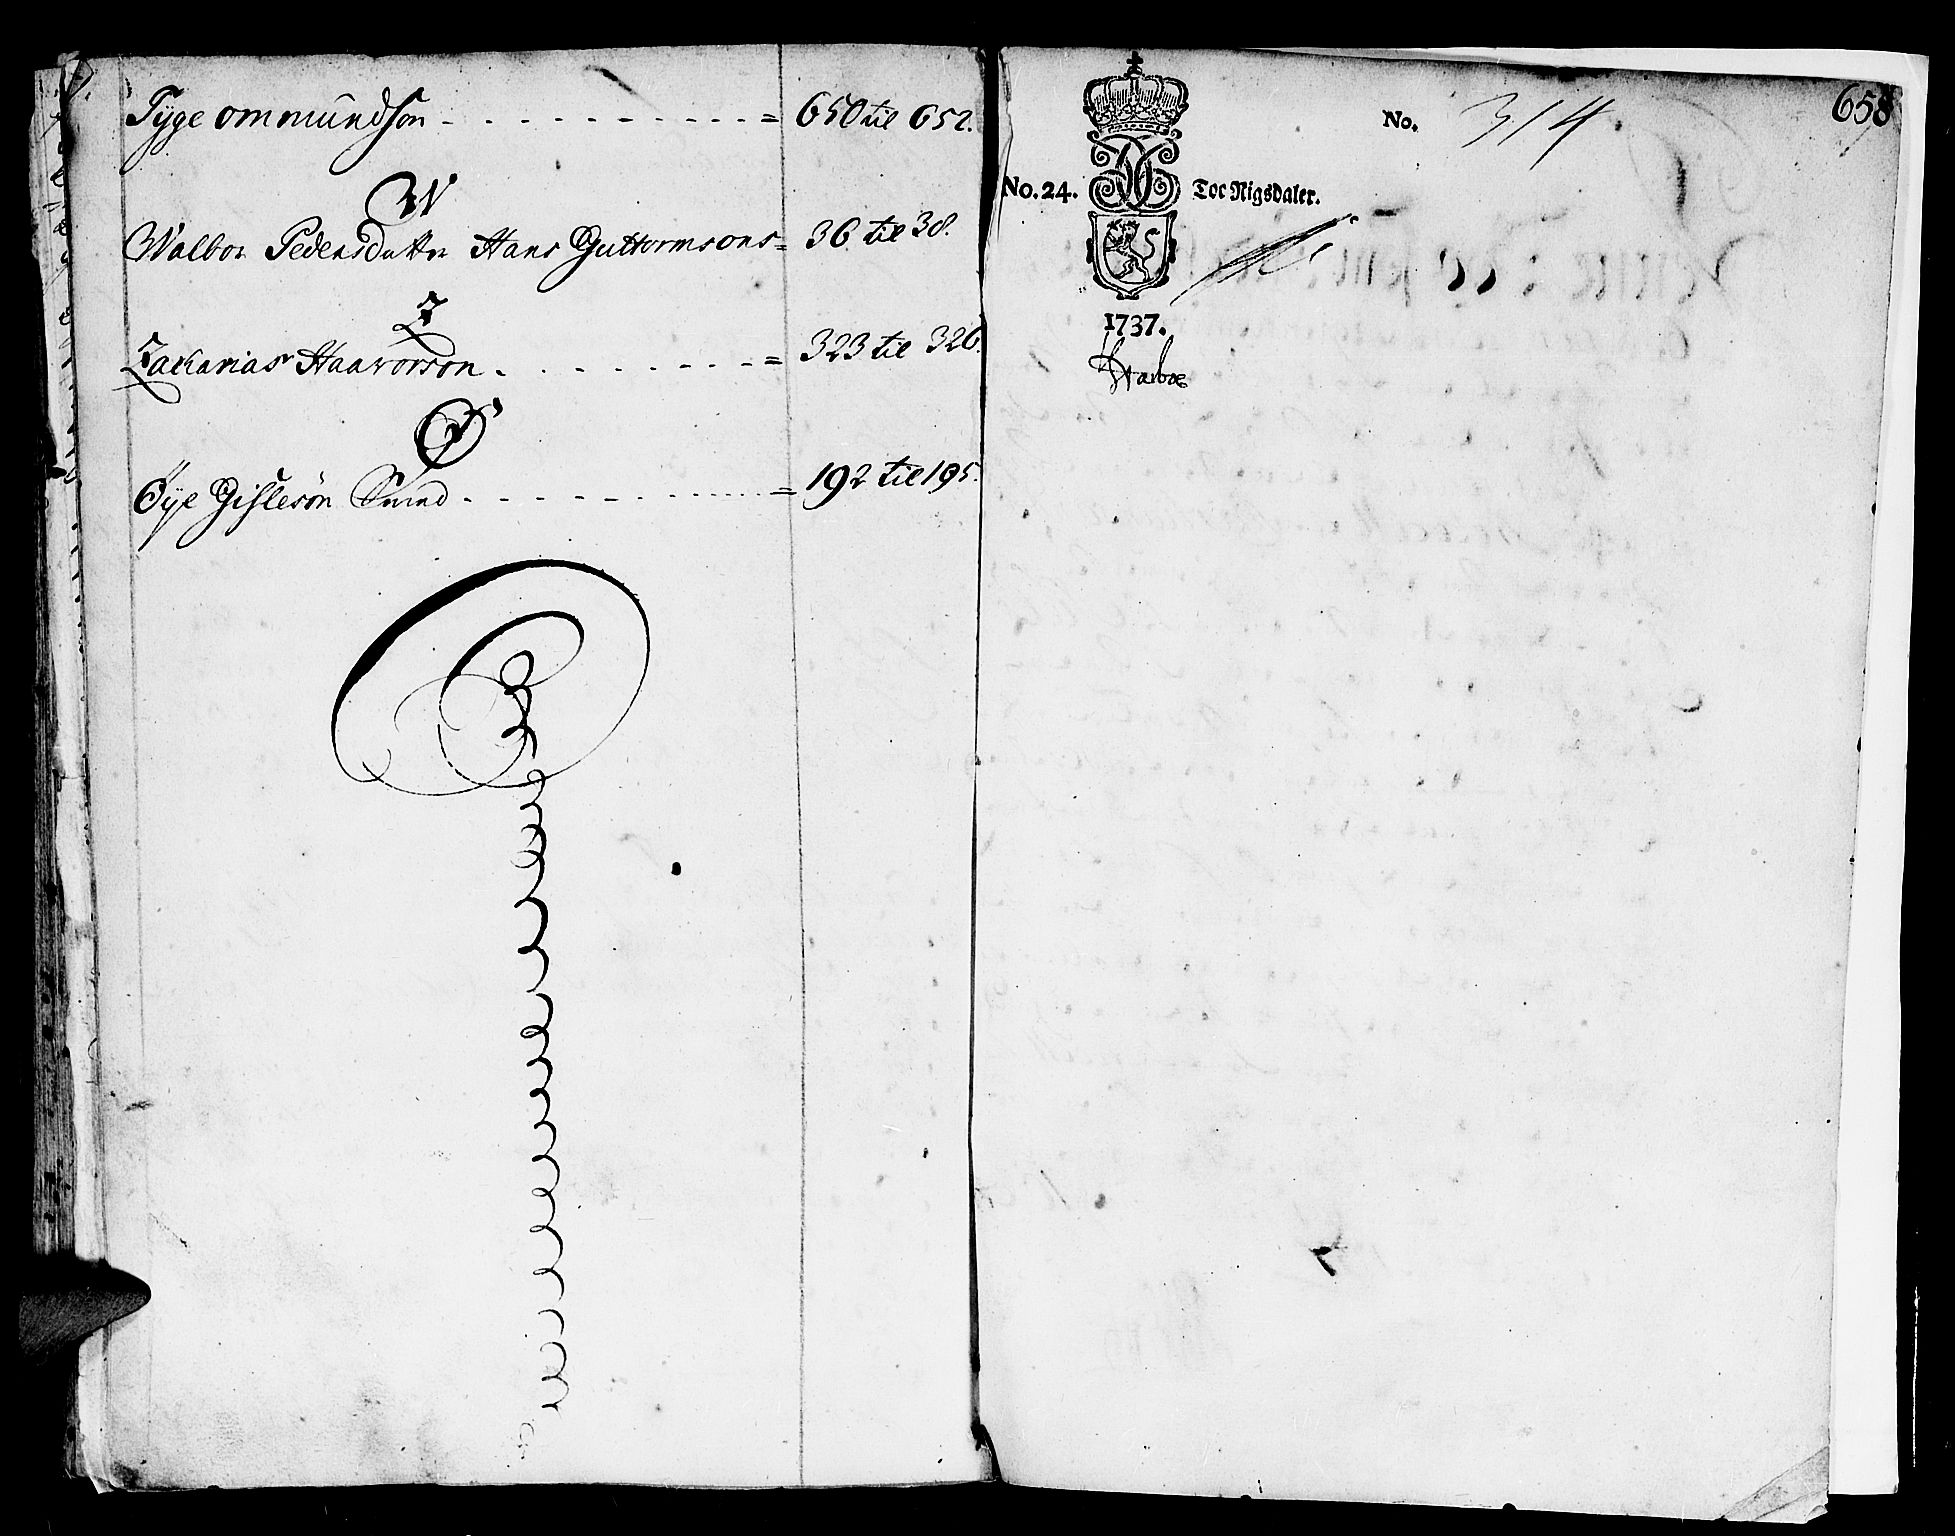 Tyge ommundson - - - - - - - - - - - = 650 til 652.
W
Walbor Pedersdatter Hans Guttormsons = 36 til 38.
Z
Zacharias Haavorson - - - - - - - - = 323 til 326.
Ø
Øye Gislesøn Smed - - - - - - - - = 192 til 195.
658
No. 314
No. 24. Toe Rigsdaler.
1737.